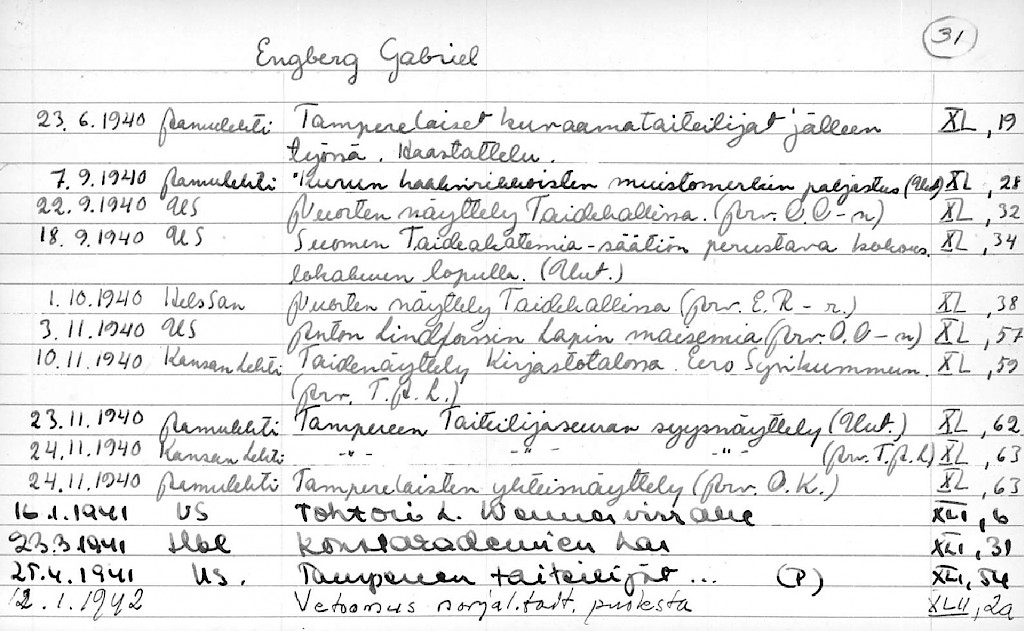 31
Engberg Gabriel
23. 6. 1940 Aamulehti Tamperelaiset kuvaamataiteilijat jälleen XL, 19
työssä. Haastattelu.
7. 9. 1940 Aamulehti Kurun haaksirikkoisten muistomerkin paljastus (Uut.) XL, 28
22. 9. 1940 US Nuorten näyttely Taidehallissa. (Arv. O. O-n) XL, 32
18. 9. 1940 US Suomen Taideakatemia-säätiön perustava kokous XL, 34
lokakuun lopulla. (Uut.)
1. 10. 1940 HelsSan Nuorten näyttely Taidehallissa (Arv. E. R-r.) XL, 38
3. 11. 1940 US Anton Lindforsin Lapin maisemia (Arv. O. O-n) XL, 57
10. 11. 1940 Kansan Lehti Taidenäyttely Kirjastotalossa. Eero
(Arv. T. A. L.) XL, 59
23. 11. 1940 Aamulehti Tampereen Taiteilijaseuran syysnäyttely (Uut.) XL, 62
24. 11. 1940 Kansan Lehti -"- -"- -"- (Arv. T. A. L) XL, 63
24. 11. 1940 Aamulehti Tamperelaisten yhteisnäyttely (Arv. O. K.) XL, 63
16. 1. 1941 US Tohtori L. XLI, 6
23. 3 1941 Hbl Konstakademien har XLI, 31
25. 4. 1941 US. Tampereen taiteilijat ... (P) XLI, 54
12. 1. 1942 Vetoomus norjal. tait. puolesta XLII, 2a